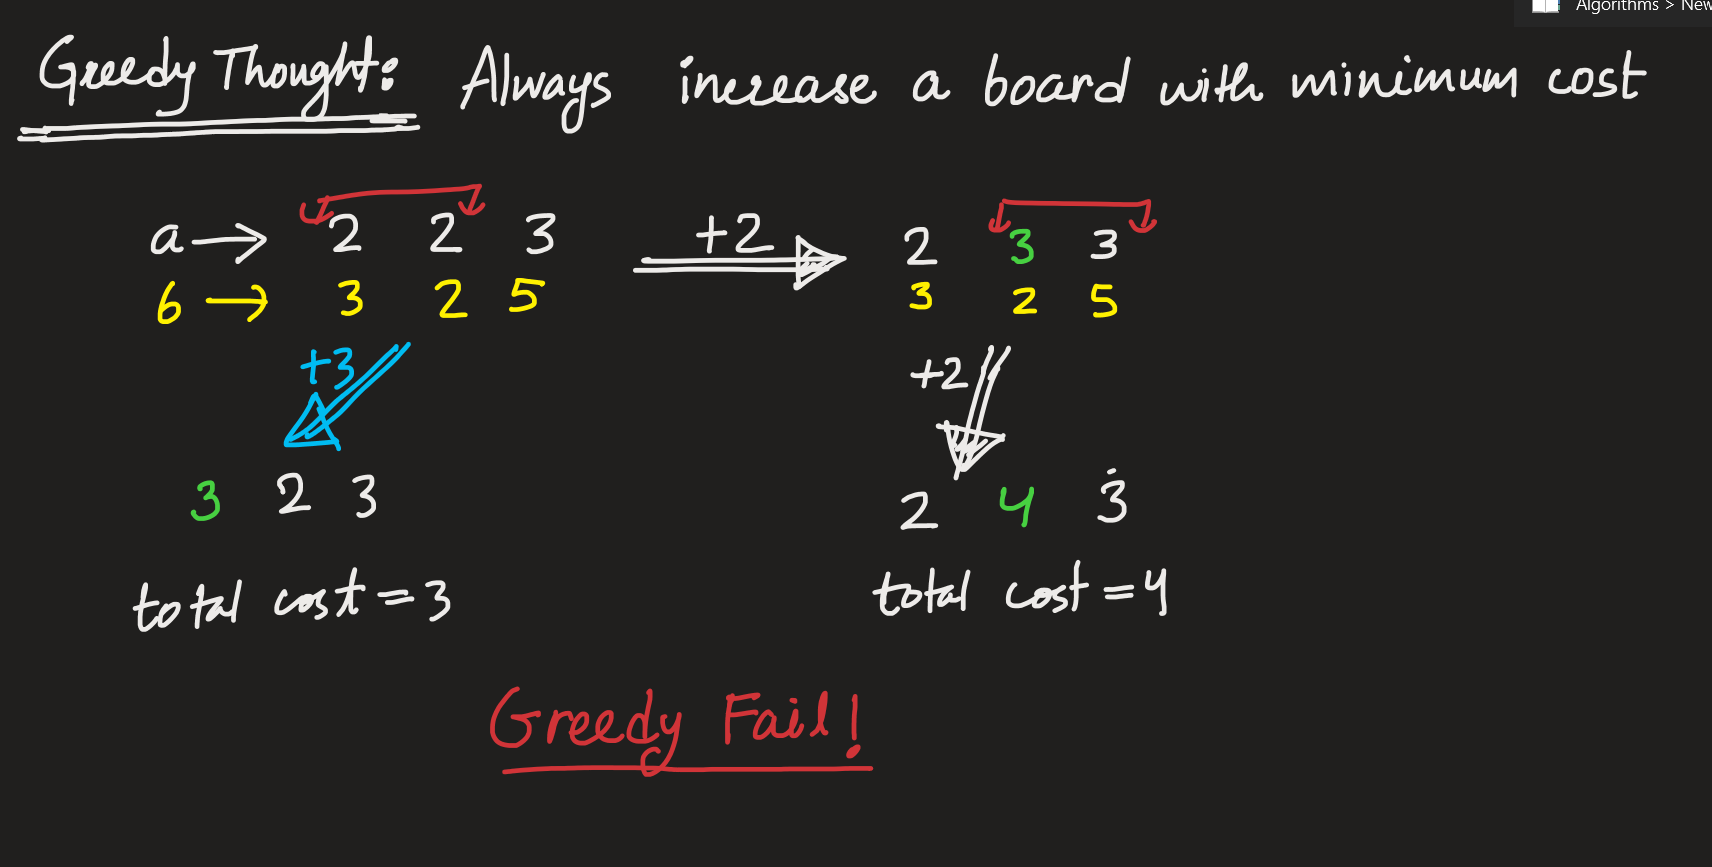 Algorithms > New
Greedy Thought: Always increase a board with minimum cost
a → 2 2 3 +2 2 3 3
b → 3 2 5 3 2 5
+3 +2
3 2 3 2 4 3
total cost = 3 total cost = 4
Greedy Fail!